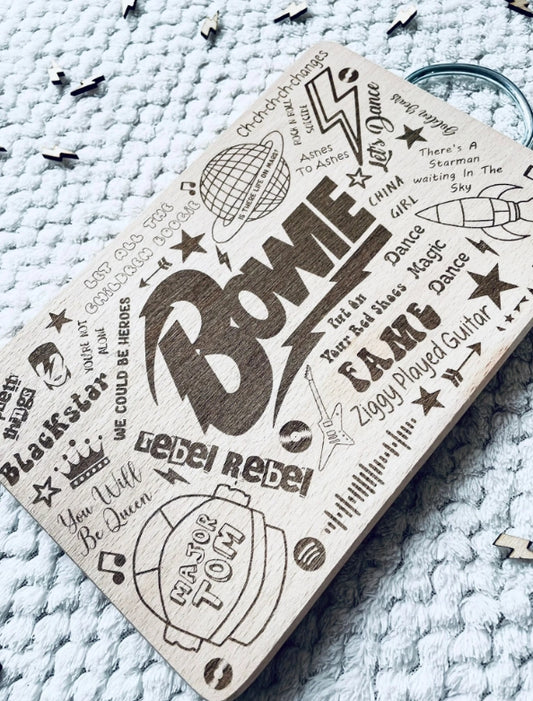 Ch-ch-ch-ch-changes
ROCK N ROLL
SUICIDE
Ashes
To Ashes
Let's Dance
Golden Years
There's A
Starman
waiting In The
Sky
IS THERE LIFE ON MARS?
CHINA
GIRL
LET ALL THE
CHILDREN BOOGIE
BOWIE
Dance
Magic
Dance
Put On
Your Red Shoes
FAME
Ziggy Played Guitar
WE COULD BE HEROES
YOU'RE NOT
ALONE
Blackstar
Rebel Rebel
You Will
Be Queen
MAJOR
TOM